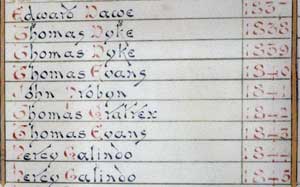 Edward Dawe 1837
Thomas Dyke 1838
Thomas Dyke 1839
Thomas Evans 1840
John Probyn 1841
Thomas Gratrex 1842
Thomas Evans 1843
Percy Galindo 1844
Percy Galindo 1845